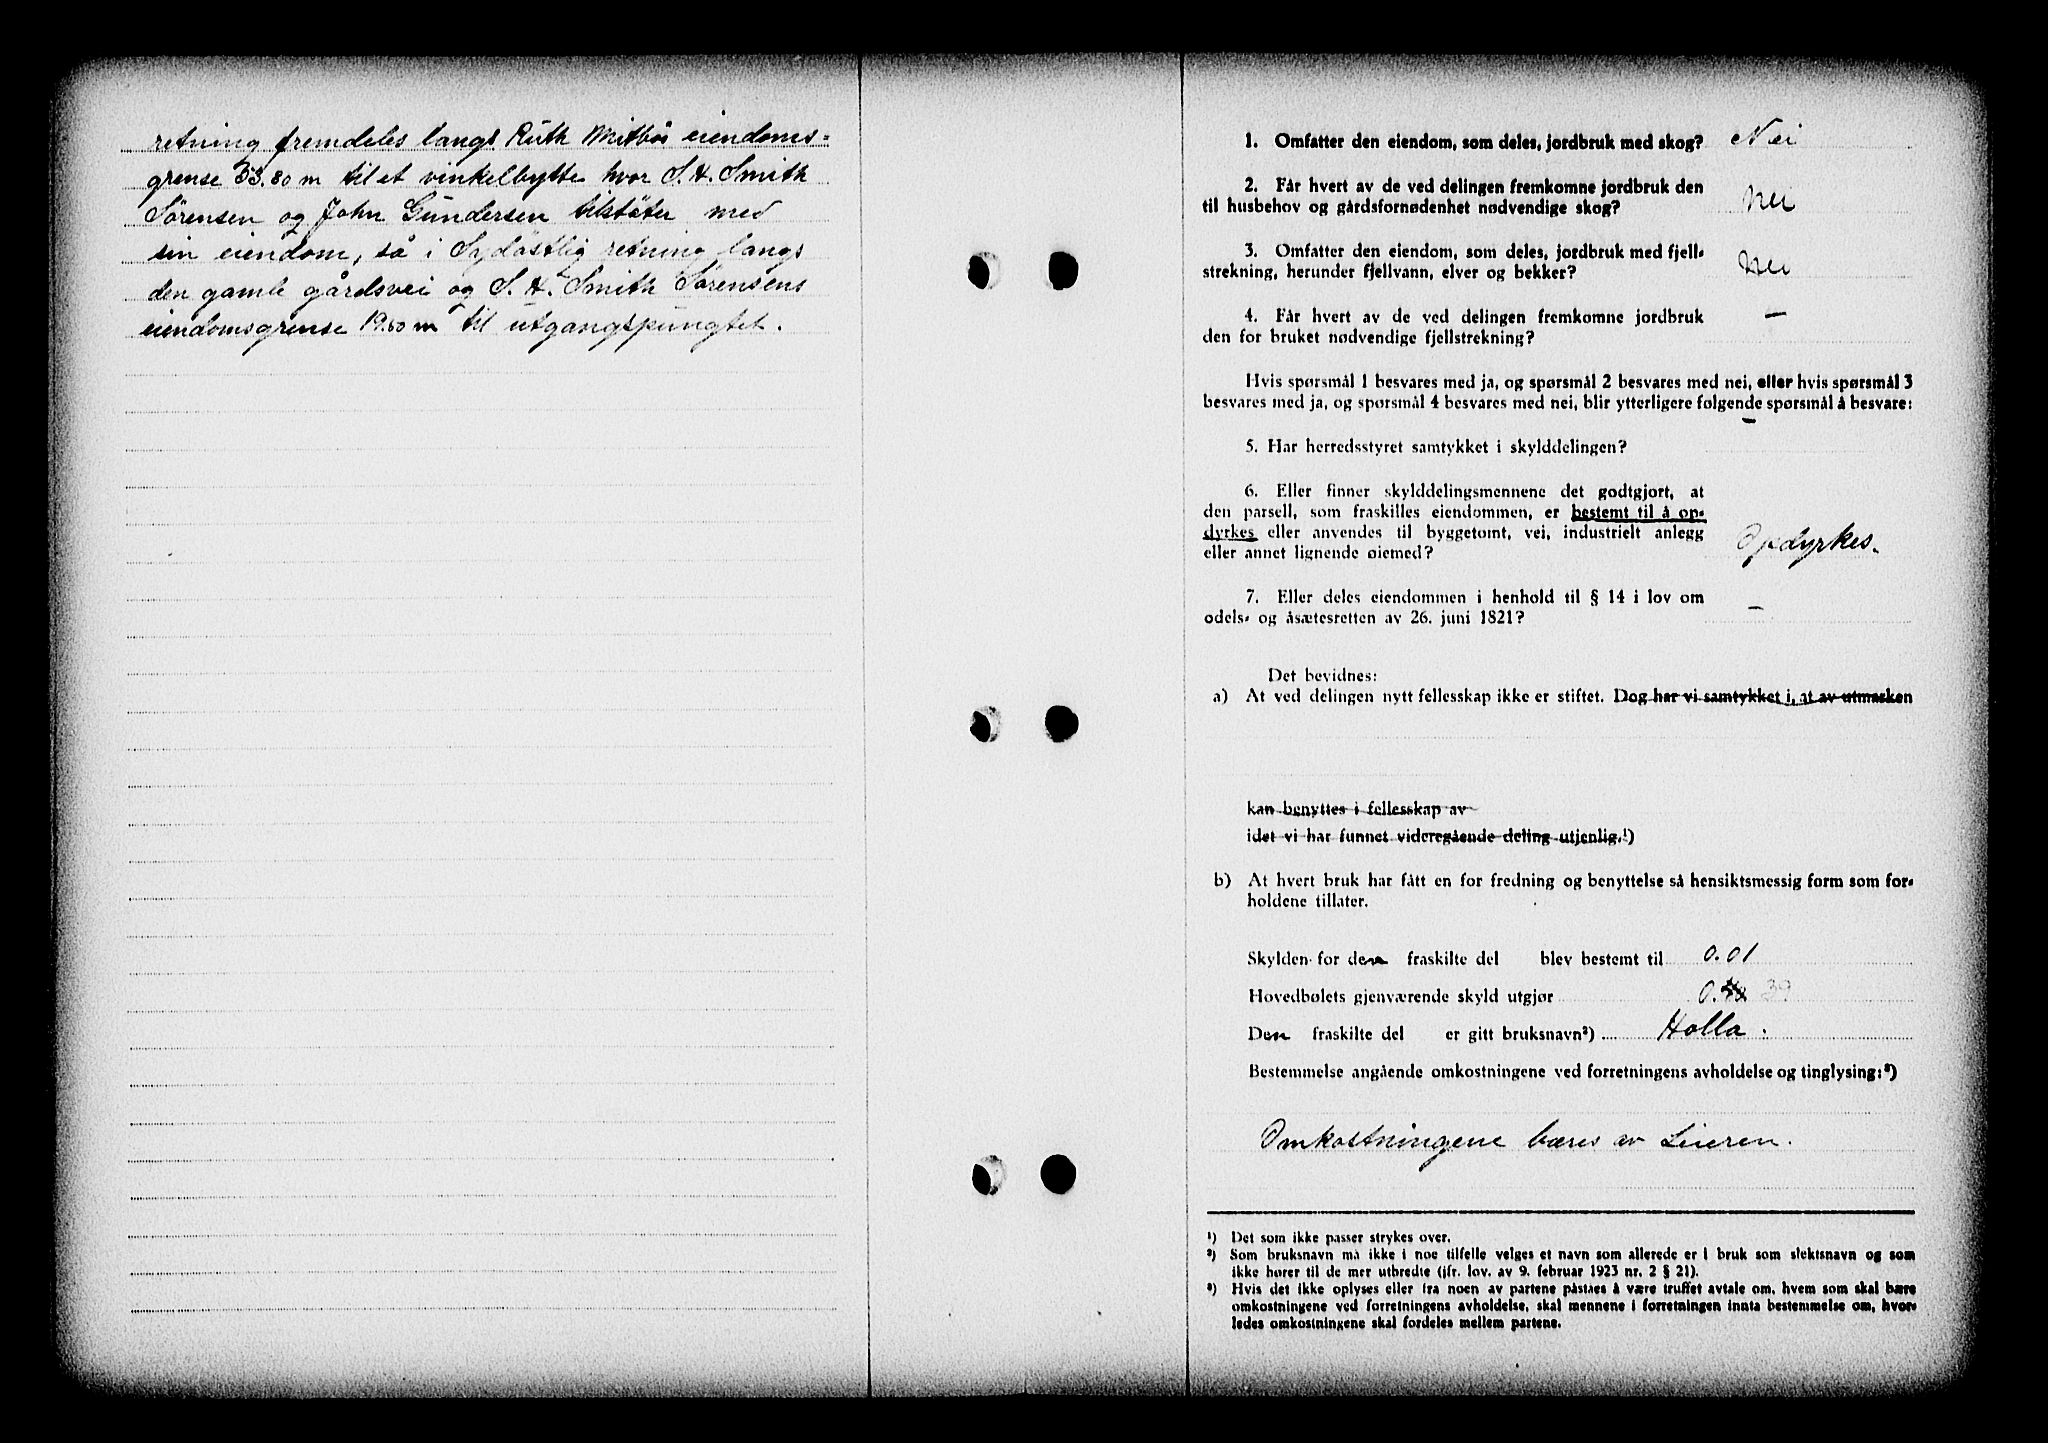 retning fremdeles langs Ruth Mitbös eiendoms=
grense 33.80 m til et vinkelbytte hvor S. H. Smith
Sörensen og John Gundersen tilstöter med
sin eiendom, så i Sydöstlig retning langs
den gamle gårdsvei og S. H. Smith Sörensens
eiendomsgrense 19.60 m til utgangspungtet.
1. Omfatter den eiendom, som deles, jordbruk med skog? Nei
2. Får hvert av de ved delingen fremkomne jordbruk den
til husbehov og gårdsfornødenhet nødvendige skog? Nei
3. Omfatter den eiendom, som deles, jordbruk med fjell-
strekning, herunder fjellvann, elver og bekker? Nei
4. Får hvert av de ved delingen fremkomne jordbruk —
den for bruket nødvendige fjellstrekning?
Hvis spørsmål 1 besvares med ja, og spørsmål 2 besvares med nei, eller hvis spørsmål 3
besvares med ja, og spørsmål 4 besvares med nei, blir ytterligere følgende spørsmål å besvare:
5. Har herredsstyret samtykket i skylddelingen? —
6. Eller finner skylddelingsmennene det godtgjort, at
den parsell, som fraskilles eiendommen, er bestemt til å op-
dyrkes eller anvendes til byggetomt, vei, industrielt anlegg
eller annet lignende øiemed? Opdyrkes.
7. Eller deles eiendommen i henhold til § 14 i lov om
odels- og åsætesretten av 26. juni 1821? —
Det bevidnes:
a) At ved delingen nytt fellesskap ikke er stiftet. Dog har vi samtykket i, at av utmarken
kan benyttes i fellesskap av
idet vi har funnet videregående deling utjenlig.¹)
b) At hvert bruk har fått en for fredning og benyttelse så hensiktsmessig form som for-
holdene tillater.
Skylden for den fraskilte del blev bestemt til 0.01
Hovedbølets gjenværende skyld utgjør 0. 39
Den fraskilte del er gitt bruksnavn²) Holla.
Bestemmelse angående omkostningene ved forretningens avholdelse og tinglysing:³)
Omkostningene bæres av Leieren.
¹) Det som ikke passer strykes over.
²) Som bruksnavn må ikke i noe tilfelle velges et navn som allerede er i bruk som slektsnavn og som
ikke hører til de mer utbredte (jfr. lov. av 9. februar 1923 nr. 2 § 21).
³) Hvis det ikke oplyses eller fra noen av partene påstaes å være truffet avtale om, hvem som skal bære
omkostningene ved forretningens avholdelse, skal mennene i forretningen innta bestemmelse om, hvor-
ledes omkostningene skal fordeles mellem partene.